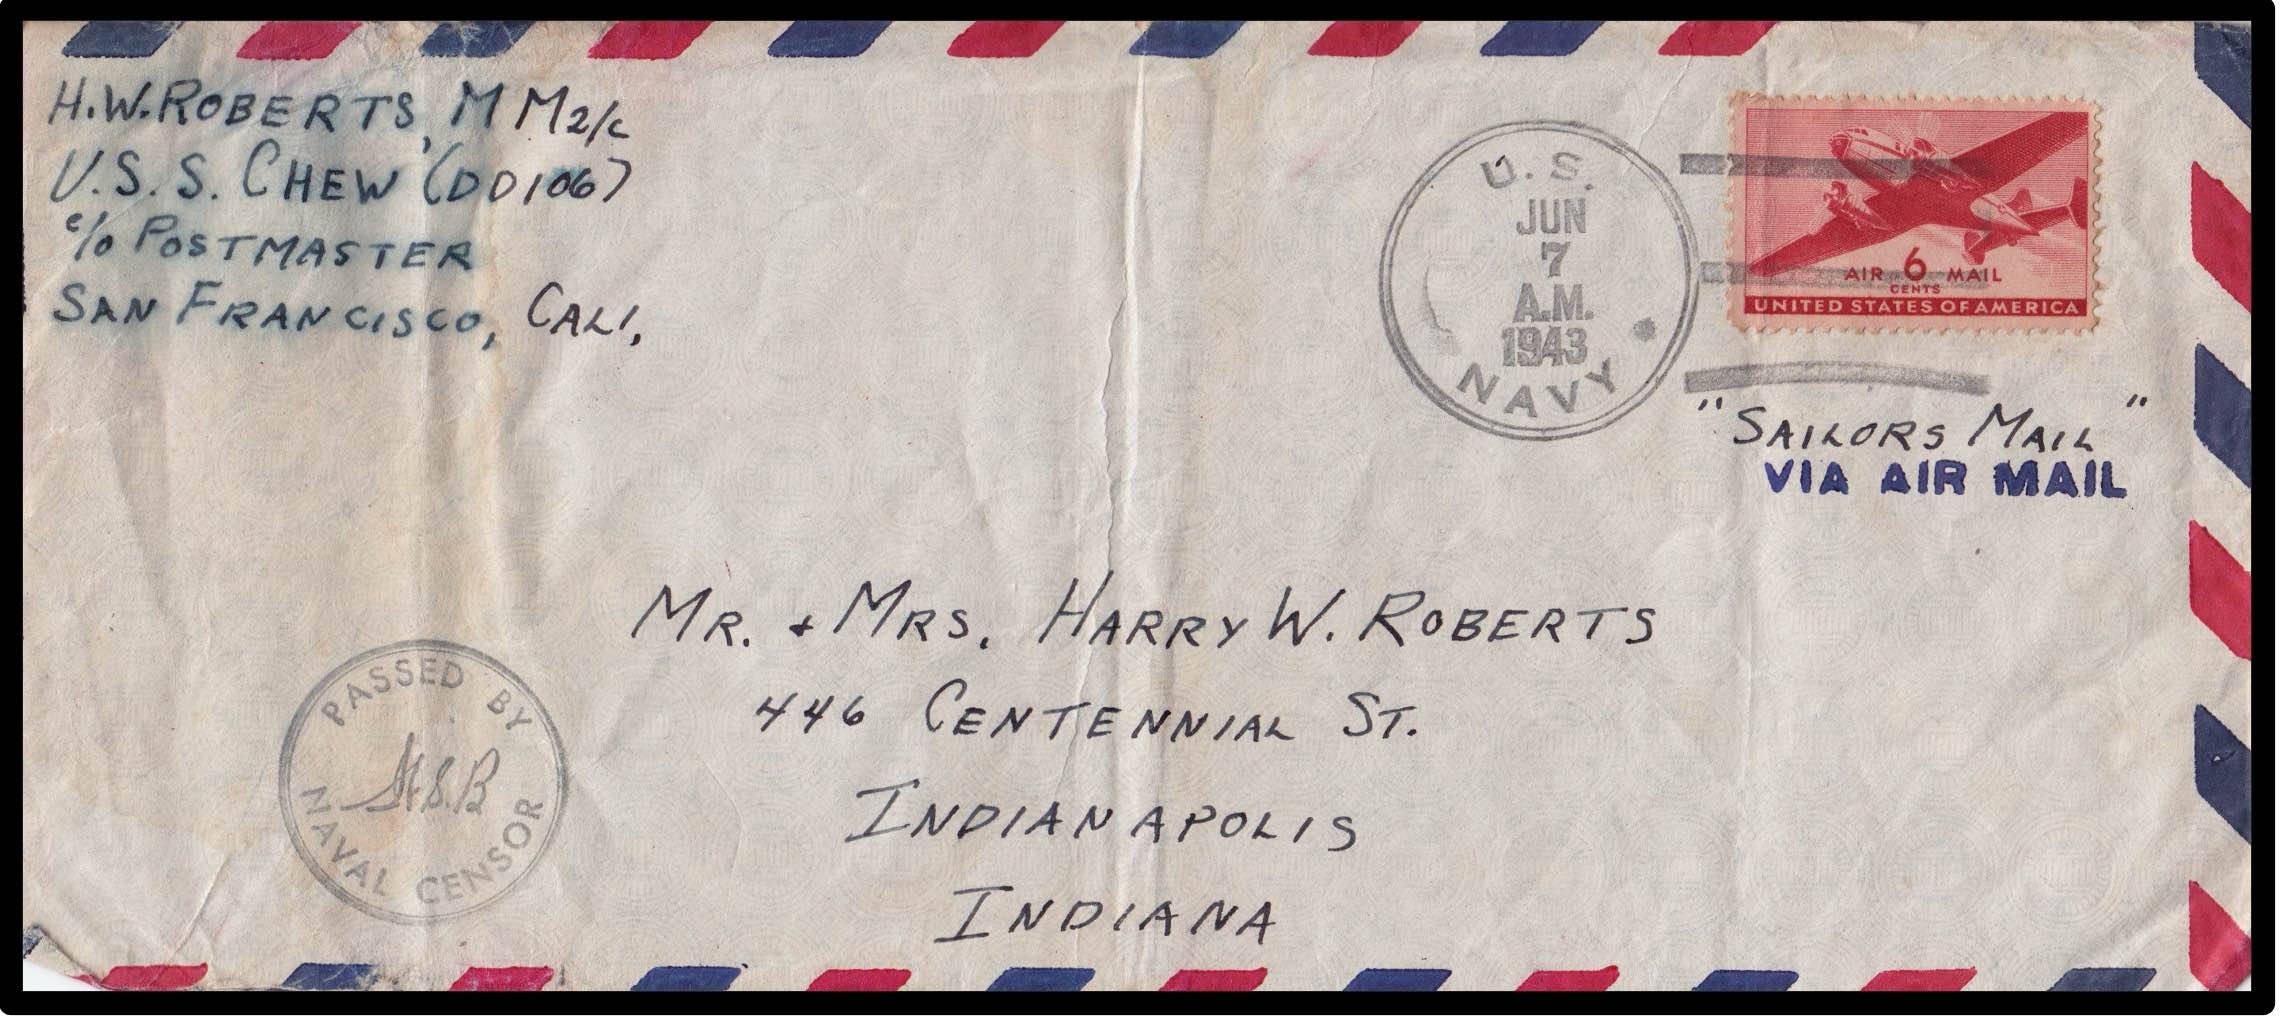 H.W. ROBERTS, MM2/c
U.S.S. CHEW (DD106)
c/o POSTMASTER
SAN FRANCISCO, CALI,
U.S.
JUN
7
A.M.
1943
NAVY
AIR 6 MAIL
CENTS
UNITED STATES OF AMERICA
"SAILORS MAIL"
VIA AIR MAIL
MR. + MRS. HARRY W. ROBERTS
446 CENTENNIAL ST.
INDIANAPOLIS
INDIANA
PASSED BY
H.S.B
NAVAL CENSOR